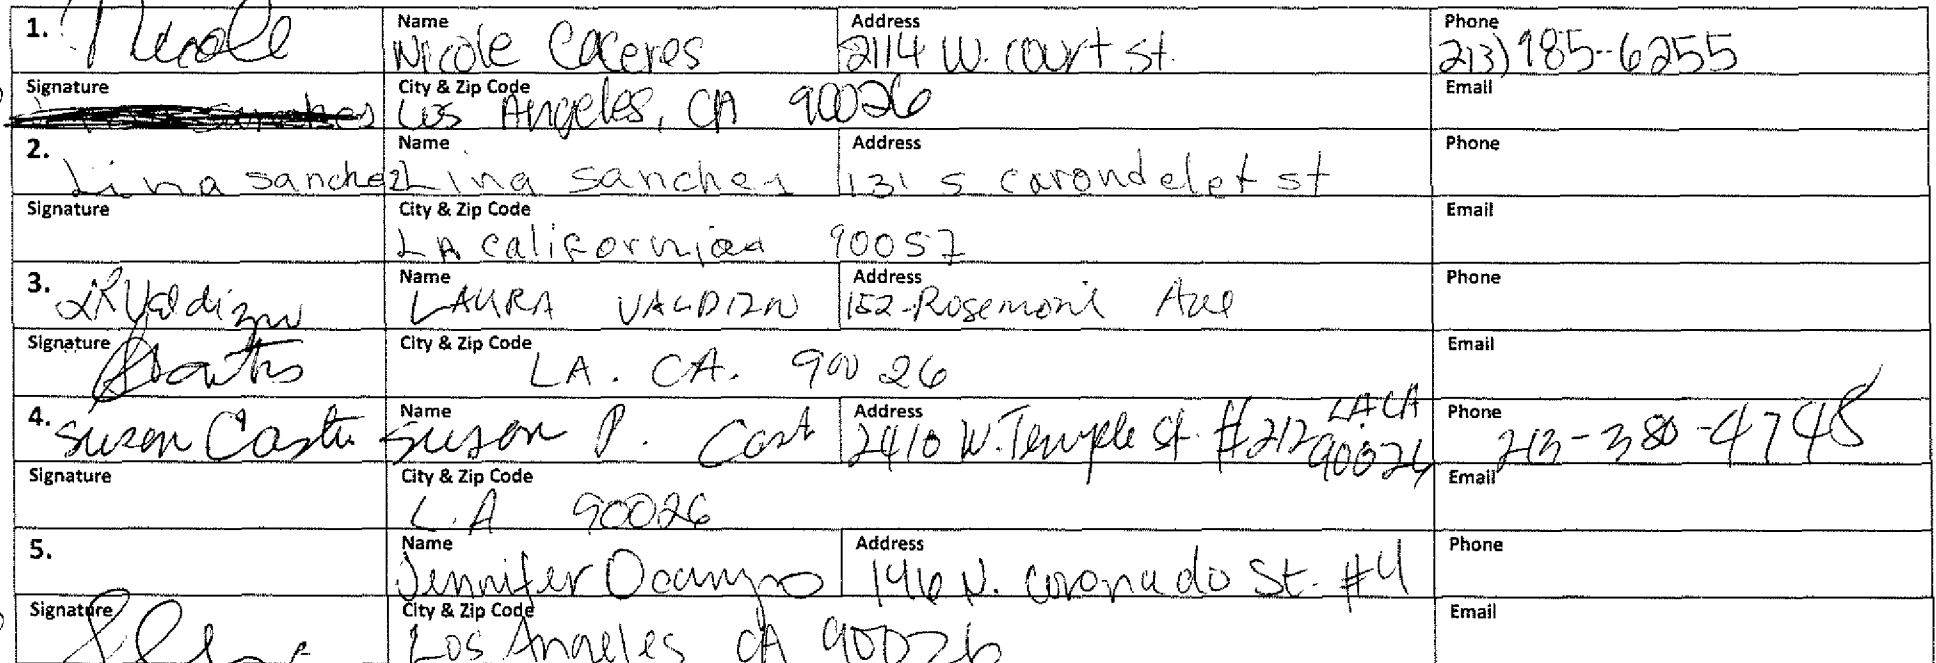 1. Nicole Name Nicole Caceres Address 2114 W. court st. Phone 213) 985-6255
Signature sanches City & Zip Code Los Angeles, CA 90026 Email
2. Lina sanchez Name Lina sanchez Address 131 s carondelet st Phone
Signature City & Zip Code LA california 90057 Email
3. Name LAURA VALDIZN Address 152-Rosemont Ave Phone
Signature City & Zip Code LA. CA. 90026 Email
4. Susan Name Susan P. Cast Address 2410 W. Temple St. #212 LA CA 90026 Phone 213-380-4748
Signature City & Zip Code L.A 90026 Email
5. Name Jennifer Ocampo Address 146 N. Coronado St. #4 Phone
Signature City & Zip Code Los Angeles CA 90026 Email